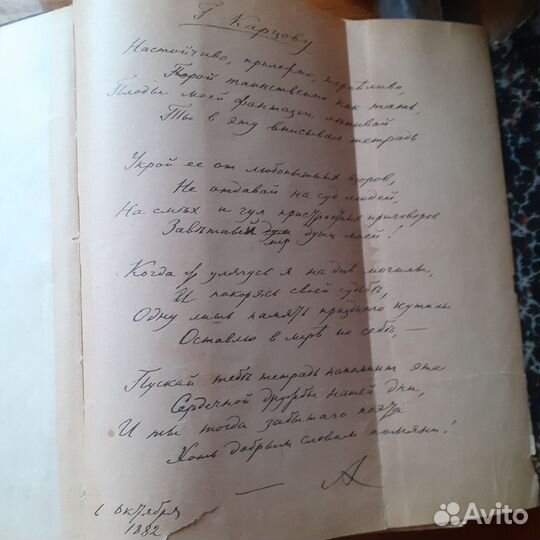 Г. Карцову
Настойчиво, прилежно, терпѣливо,
Порой таинственно какъ тать,
Плоды моей фантазіи лѣнивой
Ты в эту вписывал тетрадь
Укрой ее от любопытных взоров,
Не отдавай на суд людей,
На смѣх и гул пристрастных приговоров
Завѣтный мір души моей!
Когда улягусь я на дно могилы,
И покорясь своей судьбѣ,
Одну лишь память празднаго кутилы
Оставлю в мірѣ по себѣ, —
Пускай тебѣ тетрадь напомнит эта
Сердечной дружбы нашей дни,
И ты тогда забытаго поэта
Хоть добрым словом помяни!
— А
6 октября
1882
Avito